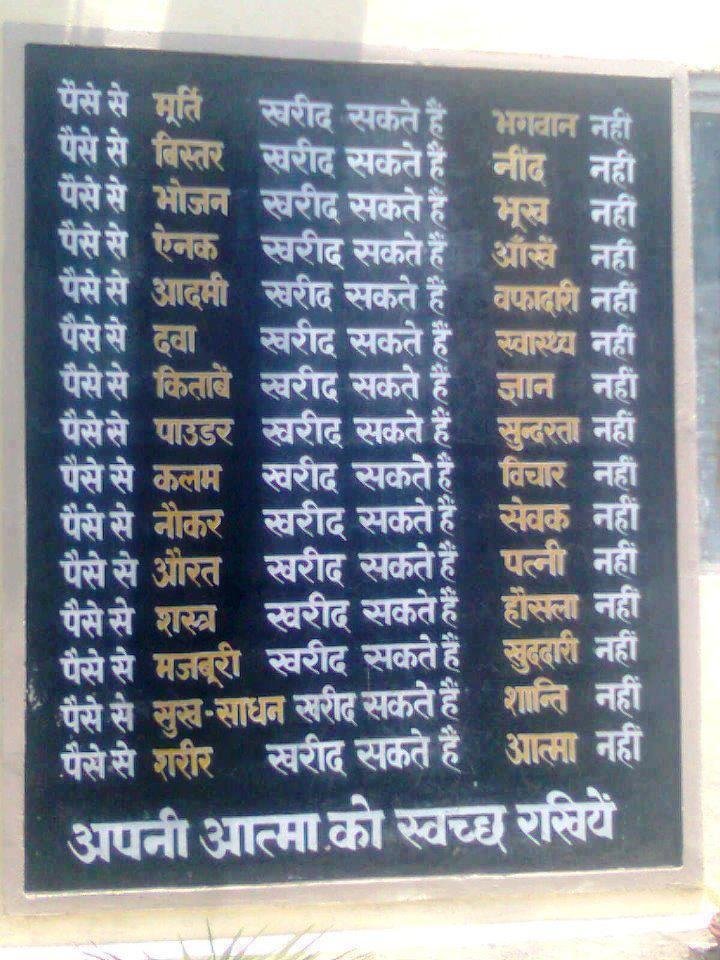 पैसे से मूर्ति खरीद सकते हैं भगवान नही
पैसे से बिस्तर खरीद सकते हैं नींद नही
पैसे से भोजन खरीद सकते हैं भूख नही
पैसे से ऐनक खरीद सकते हैं आँखें नहीं
पैसे से आदमी खरीद सकते हैं वफादारी नहीं
पैसे से दवा खरीद सकते हैं स्वास्थ्य नहीं
पैसे से किताबें खरीद सकते हैं ज्ञान नहीं
पैसे से पाउडर खरीद सकते हैं सुन्दरता नहीं
पैसे से कलम खरीद सकते हैं विचार नहीं
पैसे से नौकर खरीद सकते हैं सेवक नहीं
पैसे से औरत खरीद सकते हैं पत्नी नहीं
पैसे से शस्त्र खरीद सकते हैं हौसला नहीं
पैसे से मजबूरी खरीद सकते हैं खुददारी नहीं
पैसे से सुख-साधन खरीद सकते हैं शान्ति नहीं
पैसे से शरीर खरीद सकते हैं आत्मा नहीं
अपनी आत्मा को स्वच्छ रखियें